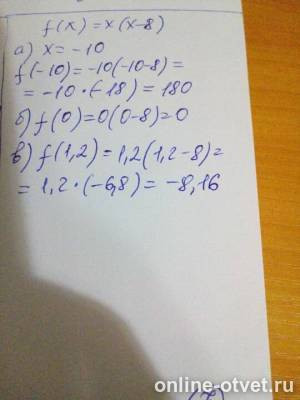 f(x) = x(x-8)
а) x = -10
f(-10) = -10(-10-8) =
= -10 · (-18) = 180
б) f(0) = 0(0-8) = 0
в) f(1,2) = 1,2(1,2-8) =
= 1,2 · (-6,8) = -8,16
online-otvet.ru